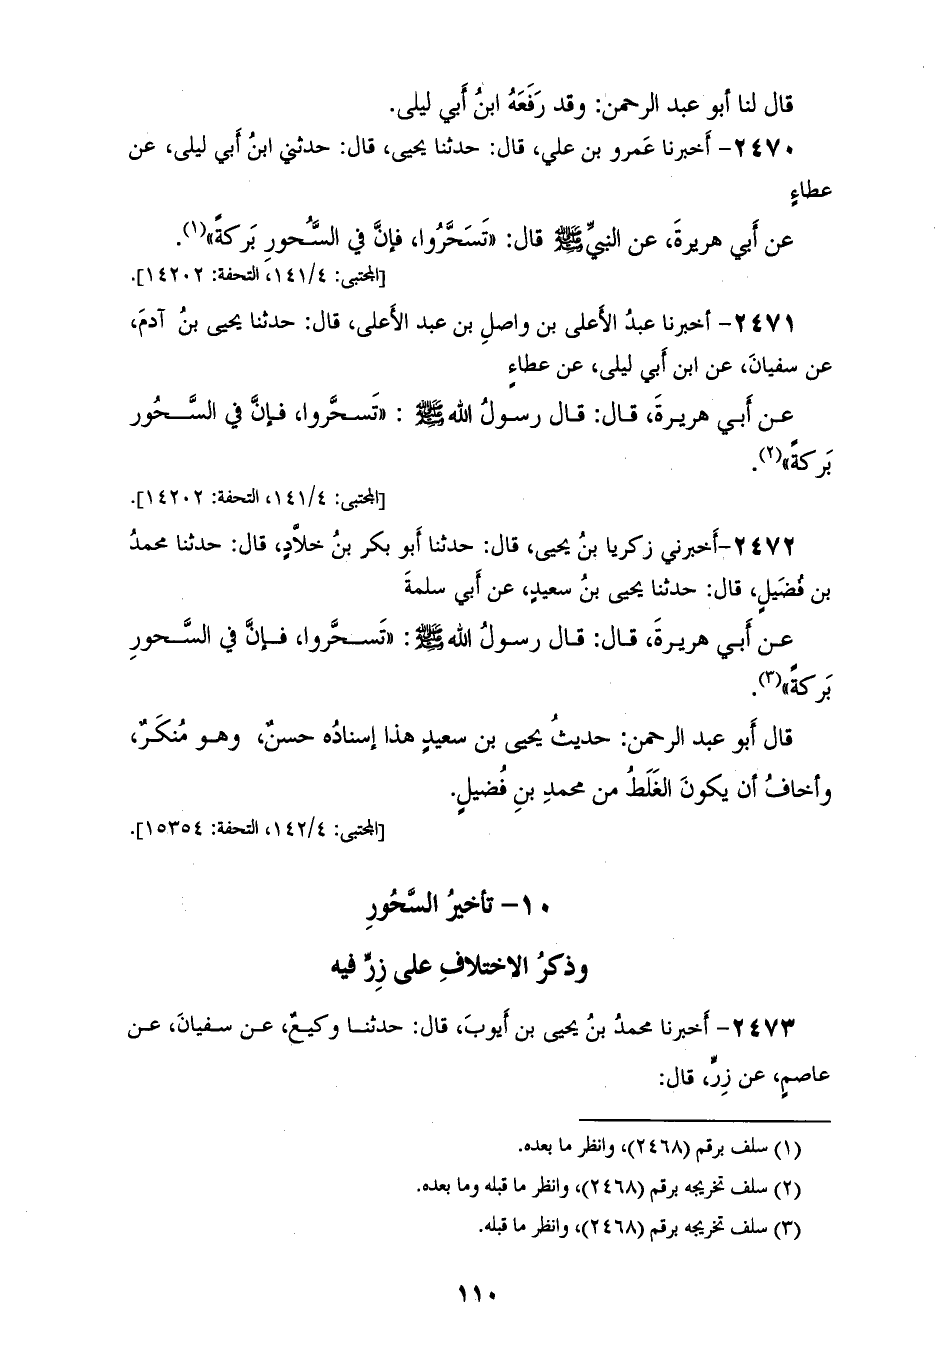 قال لنا أبو عبد الرحمن: وقد رَفَعَهُ ابنُ أَبي ليلى.
٢٤٧٠- أَخبرنا عَمرو بن علي، قال: حدثنا يحيى، قال: حدثني ابنُ أَبي ليلى، عن
عطاءٍ
عن أَبي هريرةَ، عن النبيِّ ﷺ قال: «تَسَحَّرُوا، فإنَّ في السُّحورِ بَركةً»(١).
[المجتبى: ١٤١/٤، التحفة: ١٤٢٠٢].
٢٤٧١- أخبرنا عبدُ الأعلى بن واصلِ بن عبد الأعلى، قال: حدثنا يحيى بنُ آدمَ،
عن سفيانَ، عن ابن أَبي ليلى، عن عطاءٍ
عن أَبي هريرةَ، قال: قال رسولُ الله ﷺ : «تَسحَّروا، فإنَّ في السَّحُور
بَركةً»(٢).
[المجتبى: ١٤١/٤، التحفة: ١٤٢٠٢].
٢٤٧٢-أَخبرني زكريا بنُ يحيى، قال: حدثنا أَبو بكر بنُ خلاَّدٍ، قال: حدثنا محمدُ
بن فُضَيلٍ، قال: حدثنا يحيى بنُ سعيدٍ، عن أَبي سلمةَ
عن أَبي هريرةَ، قال: قال رسولُ الله ﷺ: «تَسحَّروا، فإنَّ في السَّحورِ
بَركةً»(٣).
قال أَبو عبد الرحمن: حديثُ يحيى بن سعيدٍ هذا إسنادُه حسنٌ، وهو مُنكَرٌ،
وأخافُ أن يكونَ الغَلَطُ من محمدِ بنِ فُضيلٍ.
[المجتبى: ١٤٢/٤، التحفة: ١٥٣٥٤].
١٠- تأخيرُ السَّحُورِ
وذكرُ الاختلافِ على زِرٍّ فيه
٢٤٧٣- أَخبرنا محمدُ بنُ يحيى بن أَيوبَ، قال: حدثنا وكيعٌ، عن سفيانَ، عن
عاصمٍ، عن زِرٍّ، قال:
(١) سلف برقم (٢٤٦٨)، وانظر ما بعده.
(٢) سلف تخريجه برقم (٢٤٦٨)، وانظر ما قبله وما بعده.
(٣) سلف تخريجه برقم (٢٤٦٨)، وانظر ما قبله.
١١٠